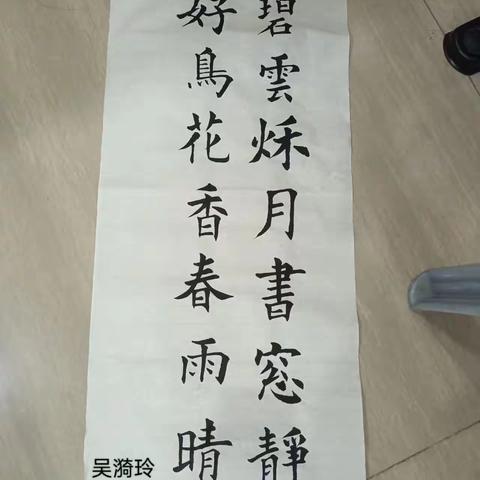 碧雲秌月書窓靜
好鳥花香春雨晴
吴漪玲